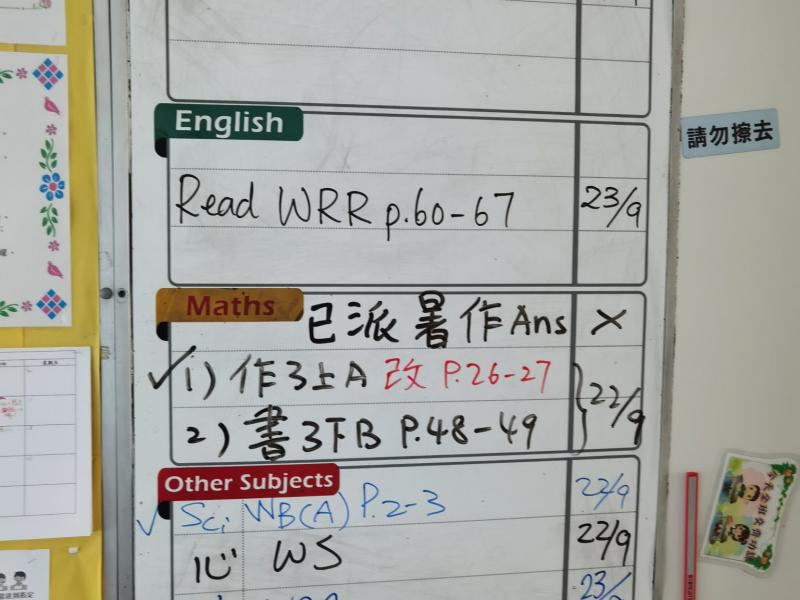 English
請勿擦去
Read WRR p.60-67 23/9
Maths 已派暑作Ans X
✓1) 作3上A 改 P.26-27
2) 書3下B P.48-49 22/9
Other Subjects
✓ Sci WB(A) P.2-3 22/9
心 WS 22/9
今天全班交齊功課
23/9